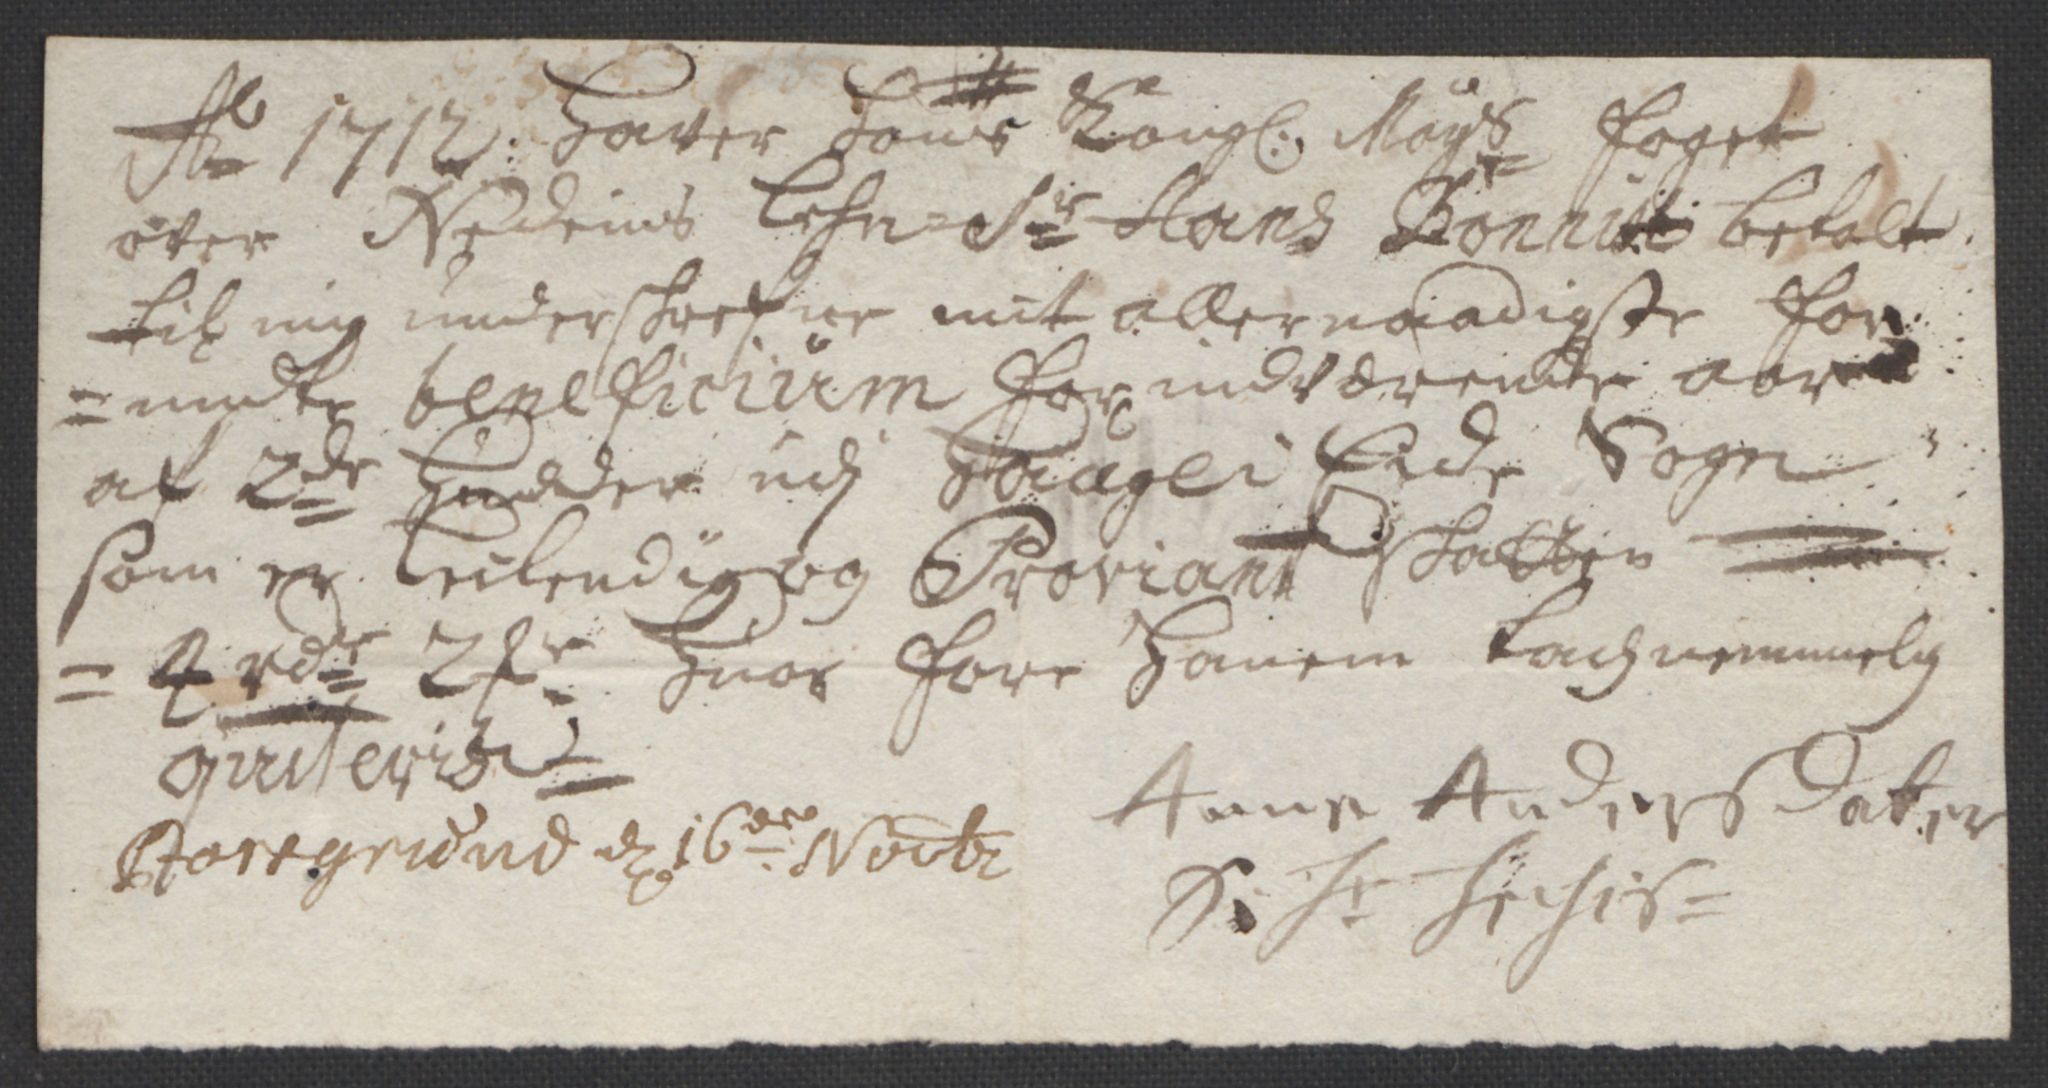 Ao 1712: Haver hans Kongl: Mayts foget
over Nedenis Lehn Sr Hans Bonnik betalt
til mig underskrefne mit allernaadigste for
= undte beneficium for indværende aar
af 2de Hudder udj Haugei Eide Sogn
som er Leilending og Proviant skatten
= 4 rdr 2 ̶ Hvor fore Hanem tachnemmelig
quiteris
Porsgrund d. 16den Novbr
Anne Anders datter
S. Hr